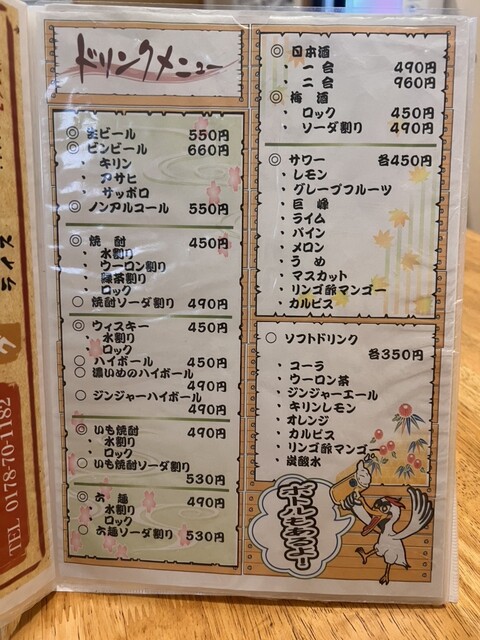 ドリンクメニュー
◎ 生ビール 550円
◎ ビンビール 660円
・ キリン
・ アサヒ
・ サッポロ
◎ ノンアルコール 550円
◎ 焼酎 450円
・ 水割り
・ ウーロン割り
・ 緑茶割り
・ ロック
○ 焼酎ソーダ割り 490円
◎ ウィスキー 450円
・ 水割り
・ ロック
○ ハイボール 450円
○ 濃いめのハイボール
490円
○ ジンジャーハイボール
490円
◎ いも焼酎 490円
・ 水割り
・ ロック
○ いも焼酎ソーダ割り
530円
◎ お麺 490円
・ 水割り
・ ロック
○ お麺ソーダ割り 530円
◎ 日本酒
・ 一合 490円
・ 二合 960円
◎ 梅酒
・ ロック 450円
・ ソーダ割り 490円
◎ サワー 各450円
・ レモン
・ グレープフルーツ
・ 巨峰
・ ライム
・ パイン
・ メロン
・ うめ
・ マスカット
・ リンゴ酢マンゴー
・ カルピス
○ ソフトドリンク
各350円
・ コーラ
・ ウーロン茶
・ ジンジャーエール
・ キリンレモン
・ オレンジ
・ カルピス
・ リンゴ酢マンゴー
・ 炭酸水
ボトルもあるよー!
TEL 0178-70-1182